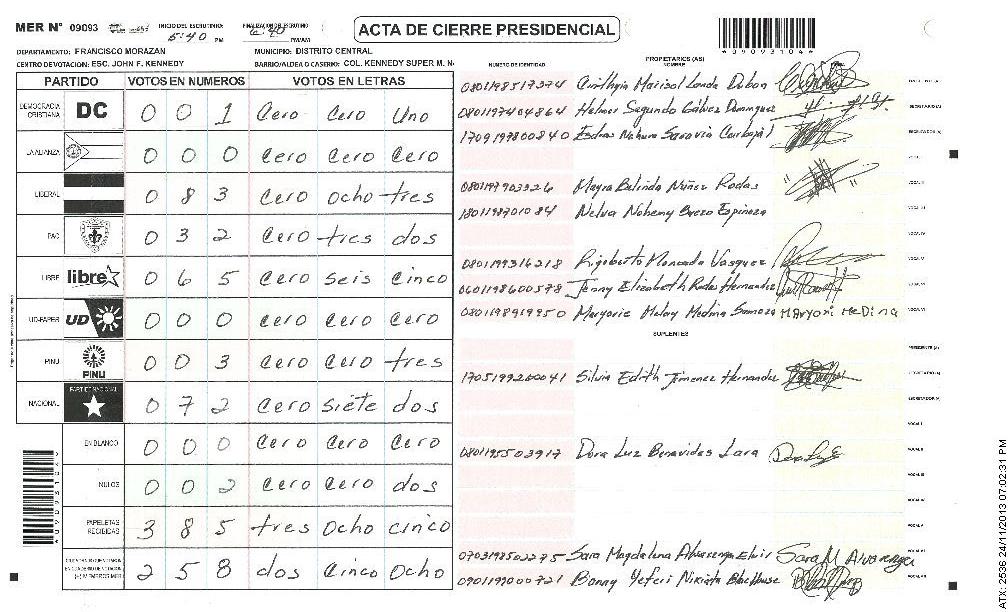 MER N° 09093 INICIO DEL ESCRUTINIO: 5:40 PM FINALIZACION DEL ESCRUTINIO 6:40 PM/AM
ACTA DE CIERRE PRESIDENCIAL
*09093104*
DEPARTAMENTO: FRANCISCO MORAZAN MUNICIPIO: DISTRITO CENTRAL
CENTRO DE VOTACION: ESC. JOHN F. KENNEDY BARRIO/ALDEA O CASERIO: COL. KENNEDY SUPER M. N
PARTIDO VOTOS EN NUMEROS VOTOS EN LETRAS
DEMOCRACIA CRISTIANA DC 0 0 1 Cero Cero Uno
LA ALIANZA 0 0 0 Cero Cero Cero
LIBERAL 0 8 3 Cero ocho tres
PAC 0 3 2 Cero tres dos
LIBRE libre 0 6 5 Cero seis cinco
UD-FAPER UD 0 0 0 Cero Cero Cero
PINU PINU 0 0 3 Cero Cero tres
NACIONAL PARTIDO NACIONAL 0 7 2 Cero siete dos
EN BLANCO 0 0 0 Cero Cero Cero
NULOS 0 0 2 Cero Cero dos
PAPELETAS RECIBIDAS 3 8 5 tres ocho cinco
2 5 8 dos Cinco Ocho
NUMERO DE IDENTIDAD PROPIETARIOS (AS) NOMBRE
0801198517374 Cinthya Marisol Landa Dubon
0801197404864 Helmer Segundo Gálvez Dominguez
1709197800840 Esdras Nahum Saravia Carbajal
0801197903326 Mayra Belinda Núñez Rodas
1801198701084 Nelva Nohemy Bueso Espinoza
0801199316218 Rigoberto Moncada Vasquez
0601198600578 Jenny Elizabeth Rodas Hernandez
0801198919950 Maryorie Melany Medina Samoza Maryori Medina
SUPLENTES
1705199200041 Silvia Edith Jimenez Hernandez
0801195503917 Dora Luz Benavides Lara
0703198502275 Sara Magdalena Alvarenga Sara M Alvarenga
0901199000721 Bonny Yeferi
ATX-2536 24/11/2013 07:02:31 PM